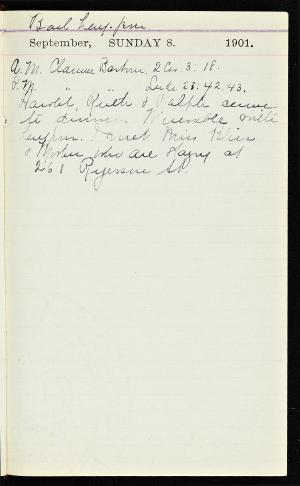 September, SUNDAY 8. 1901.
A.M. Clarence Barbour. 2 Cor. 3:18.
P.M. " " Luke 23:42.43.
Harold, Ruth & Ralph came
to dinner. Miserable with
I met Miss Bliss
& Mother who are staying at
261 Ryerson St.